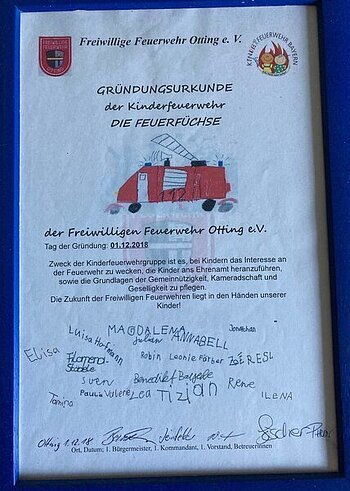 Freiwillige Feuerwehr Otting e. V.
FREIWILLIGE FEUERWEHR
KINDERFEUERWEHR BAYERN
GRÜNDUNGSURKUNDE
der Kinderfeuerwehr
DIE FEUERFÜCHSE
112
der Freiwilligen Feuerwehr Otting e.V.
Tag der Gründung: 01.12.2018
Zweck der Kinderfeuerwehrgruppe ist es, bei Kindern das Interesse an
der Feuerwehr zu wecken, die Kinder ans Ehrenamt heranzuführen,
sowie die Grundlagen der Gemeinnützigkeit, Kameradschaft und
Geselligkeit zu pflegen.
Die Zukunft der Freiwilligen Feuerwehren liegt in den Händen unserer
Kinder!
MAGDALENA Jonathan
Luisa Hofmann Julian ANNABELL
Elisa Filomena Robin Leonie Färber Zoé RESL
Sven Benedikt Rene
Tamina Paula Lea Tizian ILENA
Otting 1.12.18
Ort, Datum; 1. Bürgermeister, 1. Kommandant, 1. Vorstand, Betreuerinnen